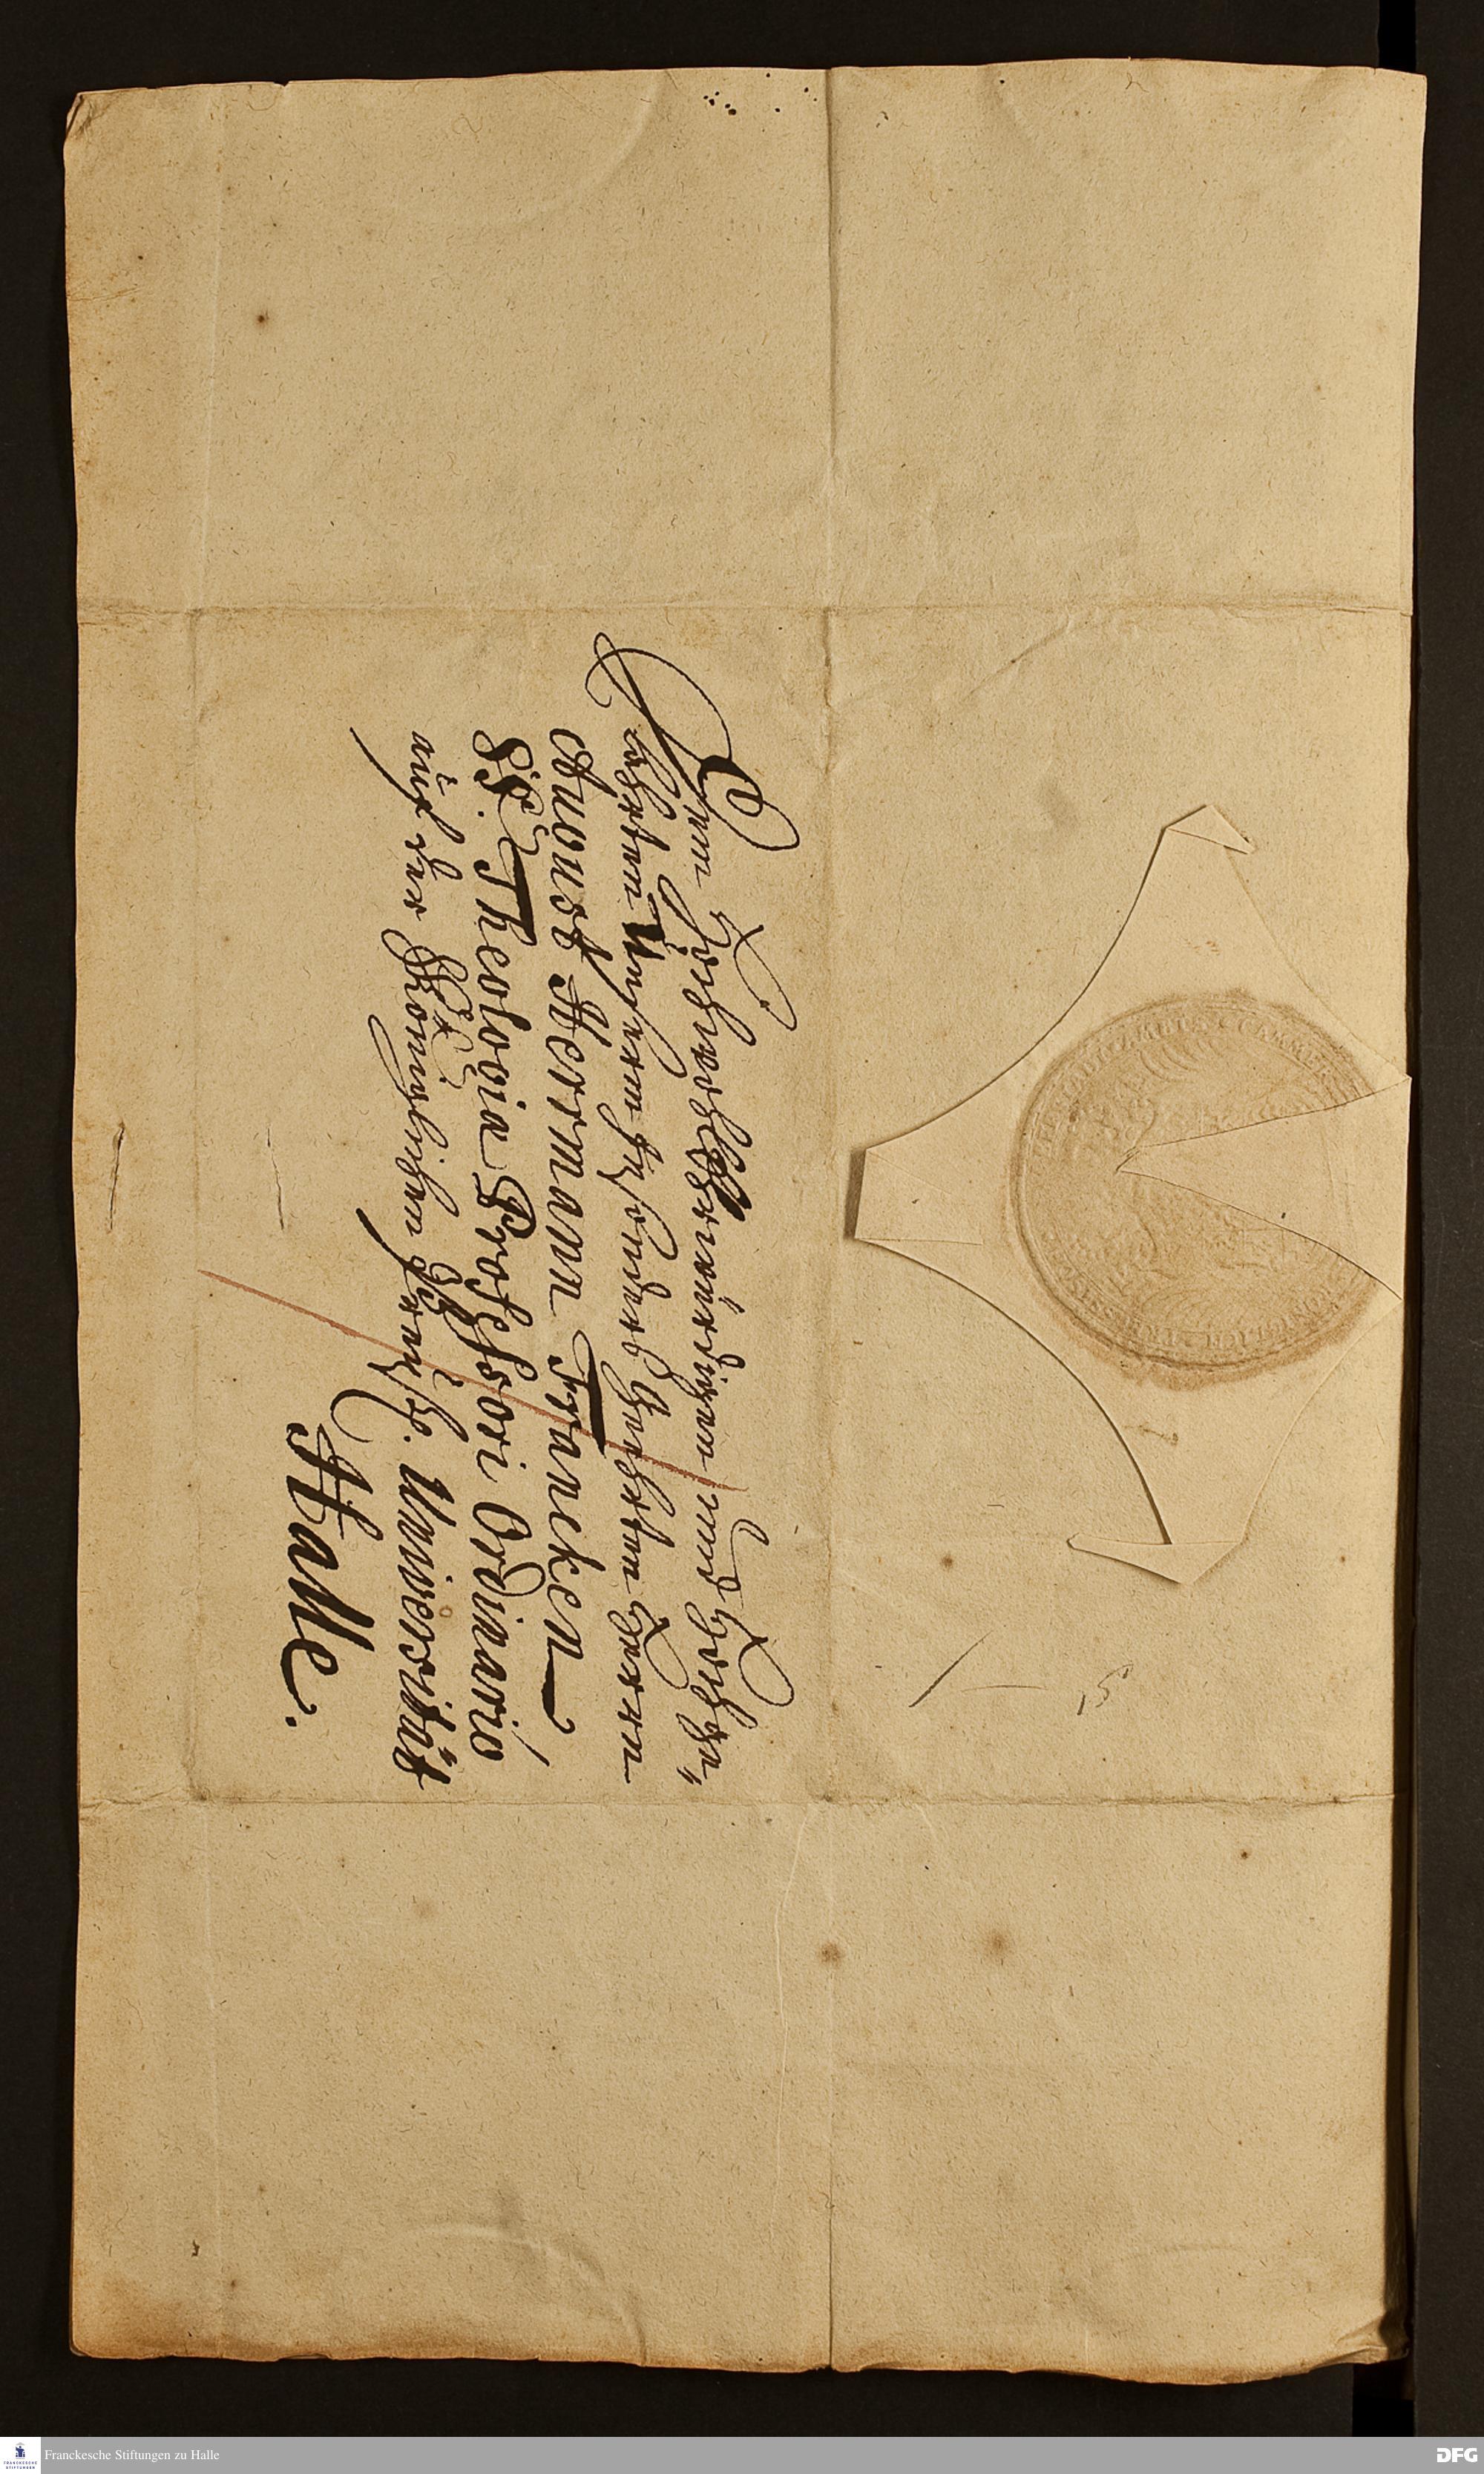 Dem HochwohlEhrwürdigen und Hochge„
lahrten Unserm insonders Geehrten Herrn
August Herrmann Francken
SS. Theologiæ Professori Ordinario
auf der Königlichen Preuß. Universität
Halle.
Franckesche Stiftungen zu Halle
DFG